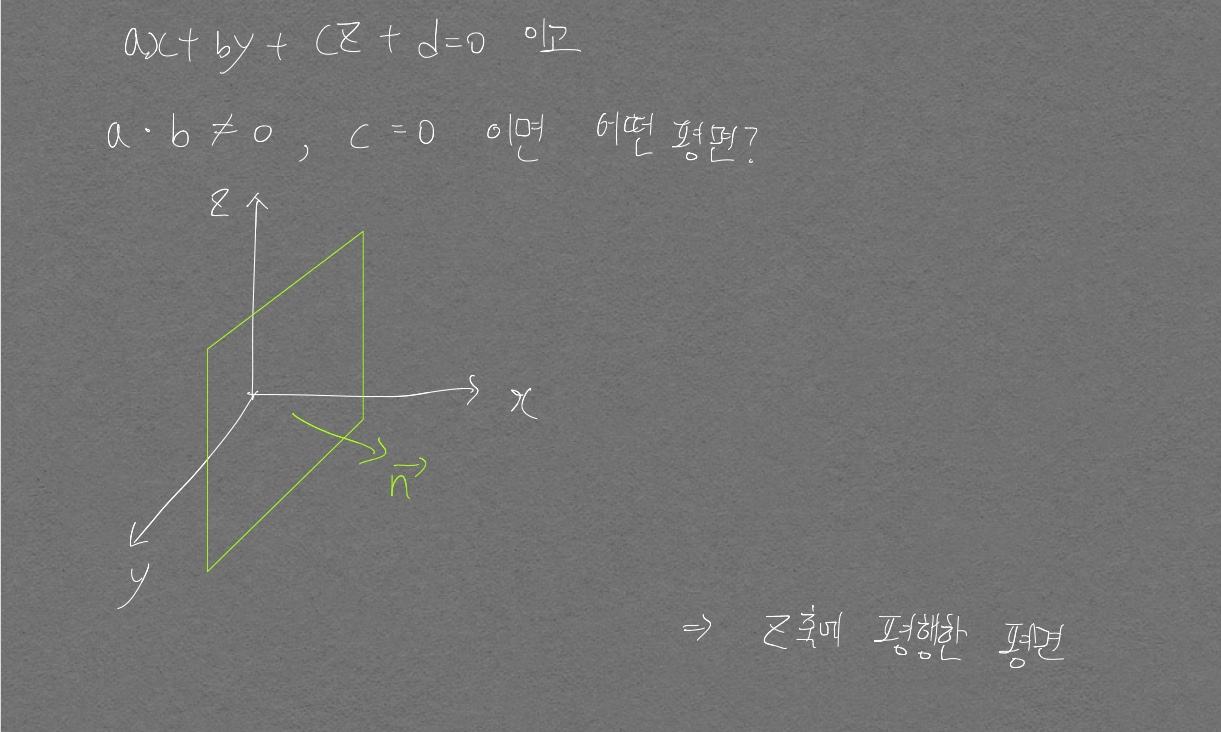 ax + by + cz + d = 0 이고
a · b ≠ 0 , c = 0 이면 어떤 평면?
z
x
n→
y
⇒ z축에 평행한 평면